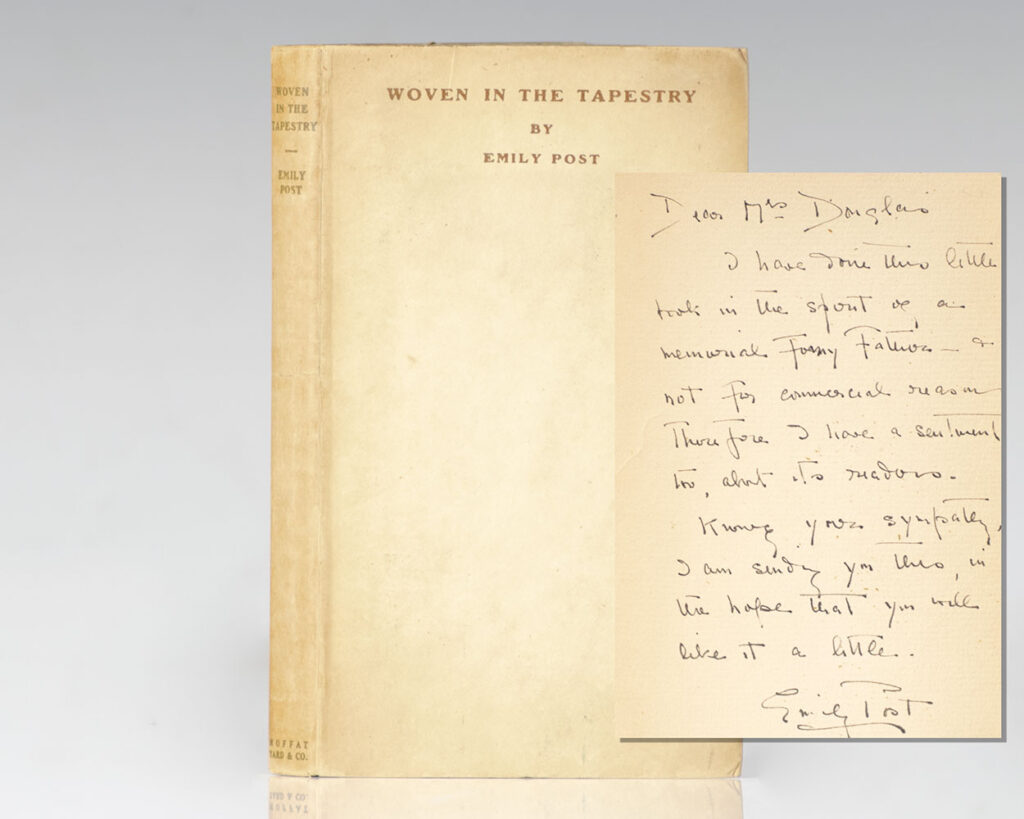 WOVEN
IN THE
TAPESTRY
EMILY
POST
MOFFAT
YARD & CO.
WOVEN IN THE TAPESTRY
BY
EMILY POST
Dear Mrs Douglas
I have done this little
book in the spirit of a
memorial for my Father — &
not for commercial reason
Therefore I have a sentiment
too, about its readers.
Knowing your sympathy,
I am sending you this, in
the hope that you will
like it a little.
Emily Post